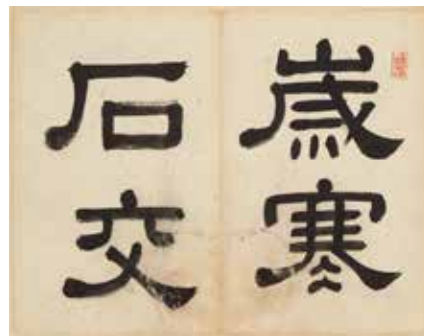 歲寒
石交